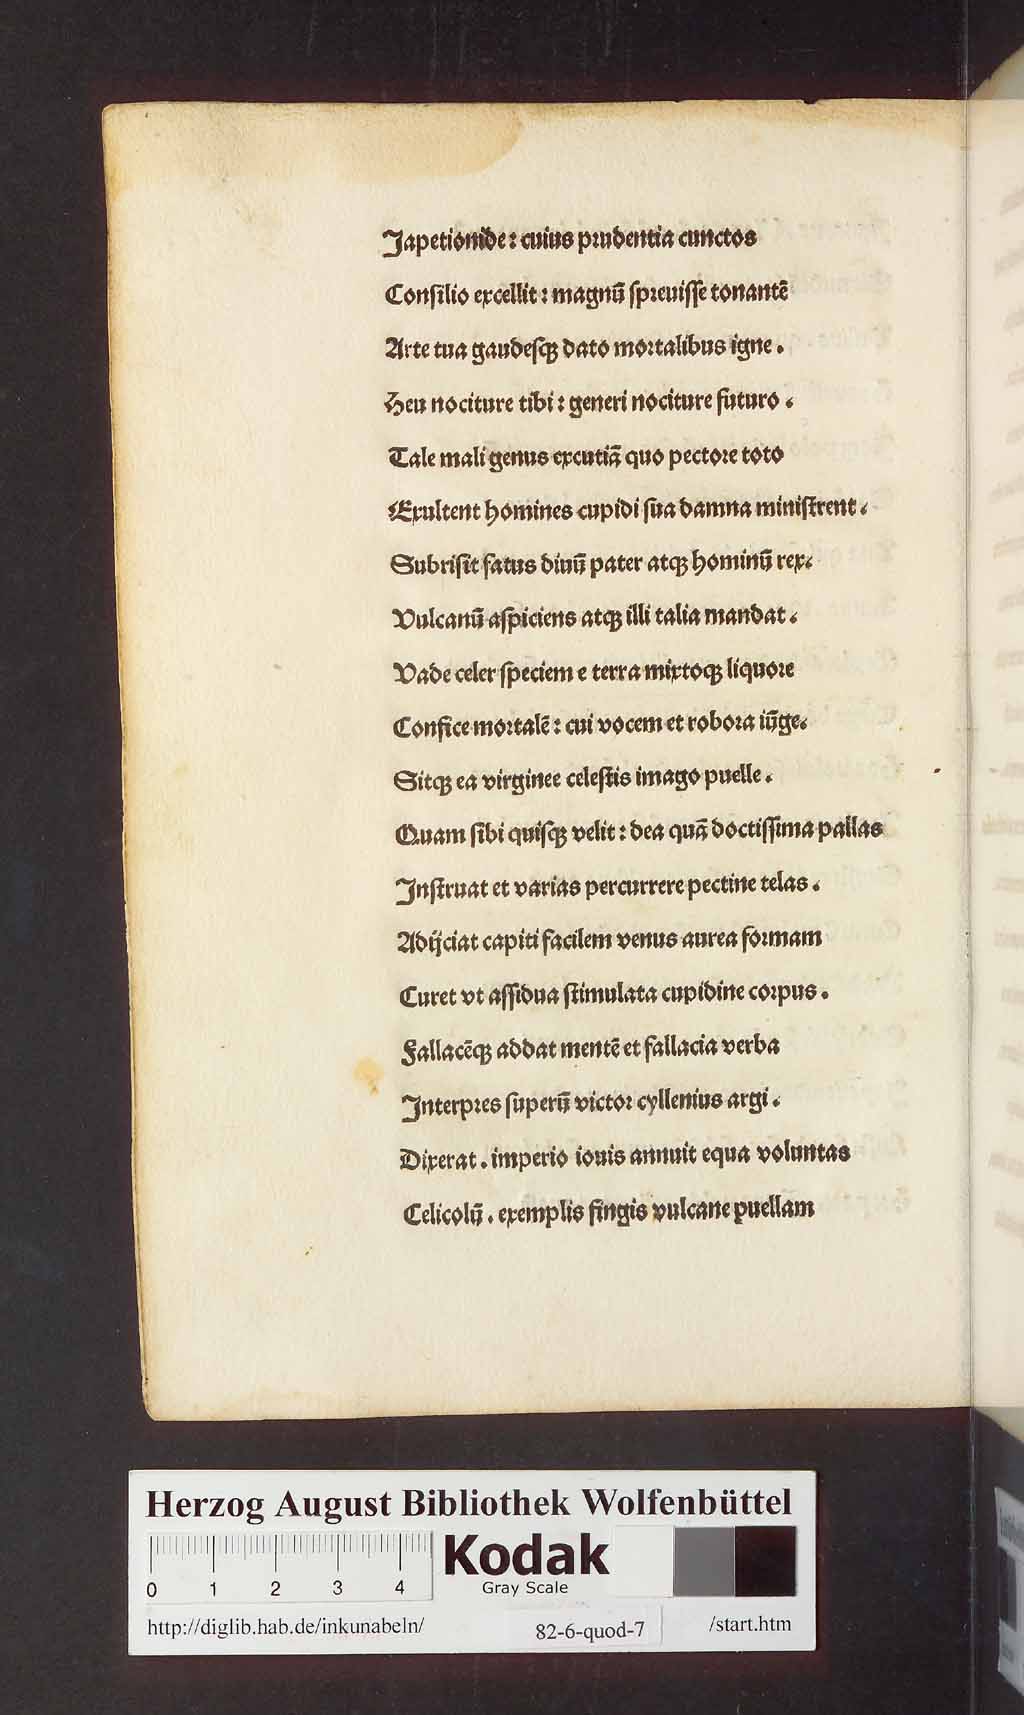 Japetionide: cuius prudentia cunctos
Consilio excellit: magnū spreuisse tonantē
Arte tua gaudesqꝫ dato mortalibus igne.
Heu nociture tibi: generi nociture futuro.
Tale mali genus excutiā quo pectore toto
Exultent homines cupidi sua damna ministrent.
Subrisit fatus diuū pater atqꝫ hominū rex.
Vulcanū aspiciens atqꝫ illi talia mandat.
Vade celer speciem e terra mixtoqꝫ liquore
Confice mortalē: cui vocem et robora iūge.
Sitqꝫ ea virginee celestis imago puelle.
Quam sibi quisqꝫ velit: dea quā doctissima pallas
Instruat et varias percurrere pectine telas.
Adijciat capiti facilem venus aurea formam
Curet vt assidua stimulata cupidine corpus.
Fallacēqꝫ addat mentē et fallacia verba
Interpres superū victor cyllenius argi.
Dixerat. imperio iouis annuit equa voluntas
Celicolū. exemplis fingis vulcane puellam
Herzog August Bibliothek Wolfenbüttel
Kodak
Gray Scale
0 1 2 3 4
http://diglib.hab.de/inkunabeln/ 82-6-quod-7 /start.htm